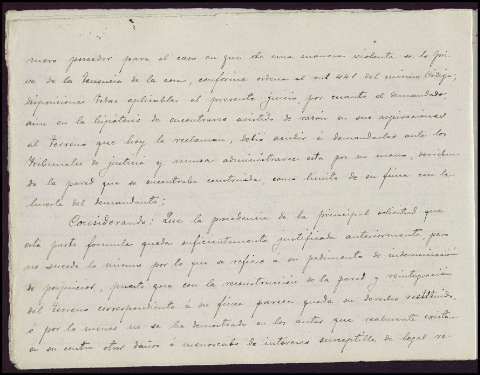 nuevo poseedor para el caso en que de una manera violenta se le pri-
ve de la tenencia de la cosa, conforme ordena el art 441 del mismo Código;
disposiciones todas aplicables al presente juicio por cuanto el demandado,
aun en la hipótesis de encontrarse asistido de razón en sus aspiraciones
al terreno que hoy le reclaman, debió acudir á demandarlas ante los
tribunales de justicia y nunca administrarse esta por su mano, derriban-
do la pared que se encontraba construida, como límite de su finca con la
huerta del demandante;
Considerando: Que la procedencia de la principal solicitud que
esta parte formula queda suficientemente justificada anteriormente, pero
no sucede lo mismo por lo que se refiere á su pedimento de indemnización
de perjuicios, puesto que con la reconstrucción de la pared y reintegración
del terreno correspondiente á su finca parece queda su derecho restituido,
ó por lo menos no se ha demostrado en los autos que realmente existan
en su contra otros daños ó menoscabo de intereses susceptible de legal re-